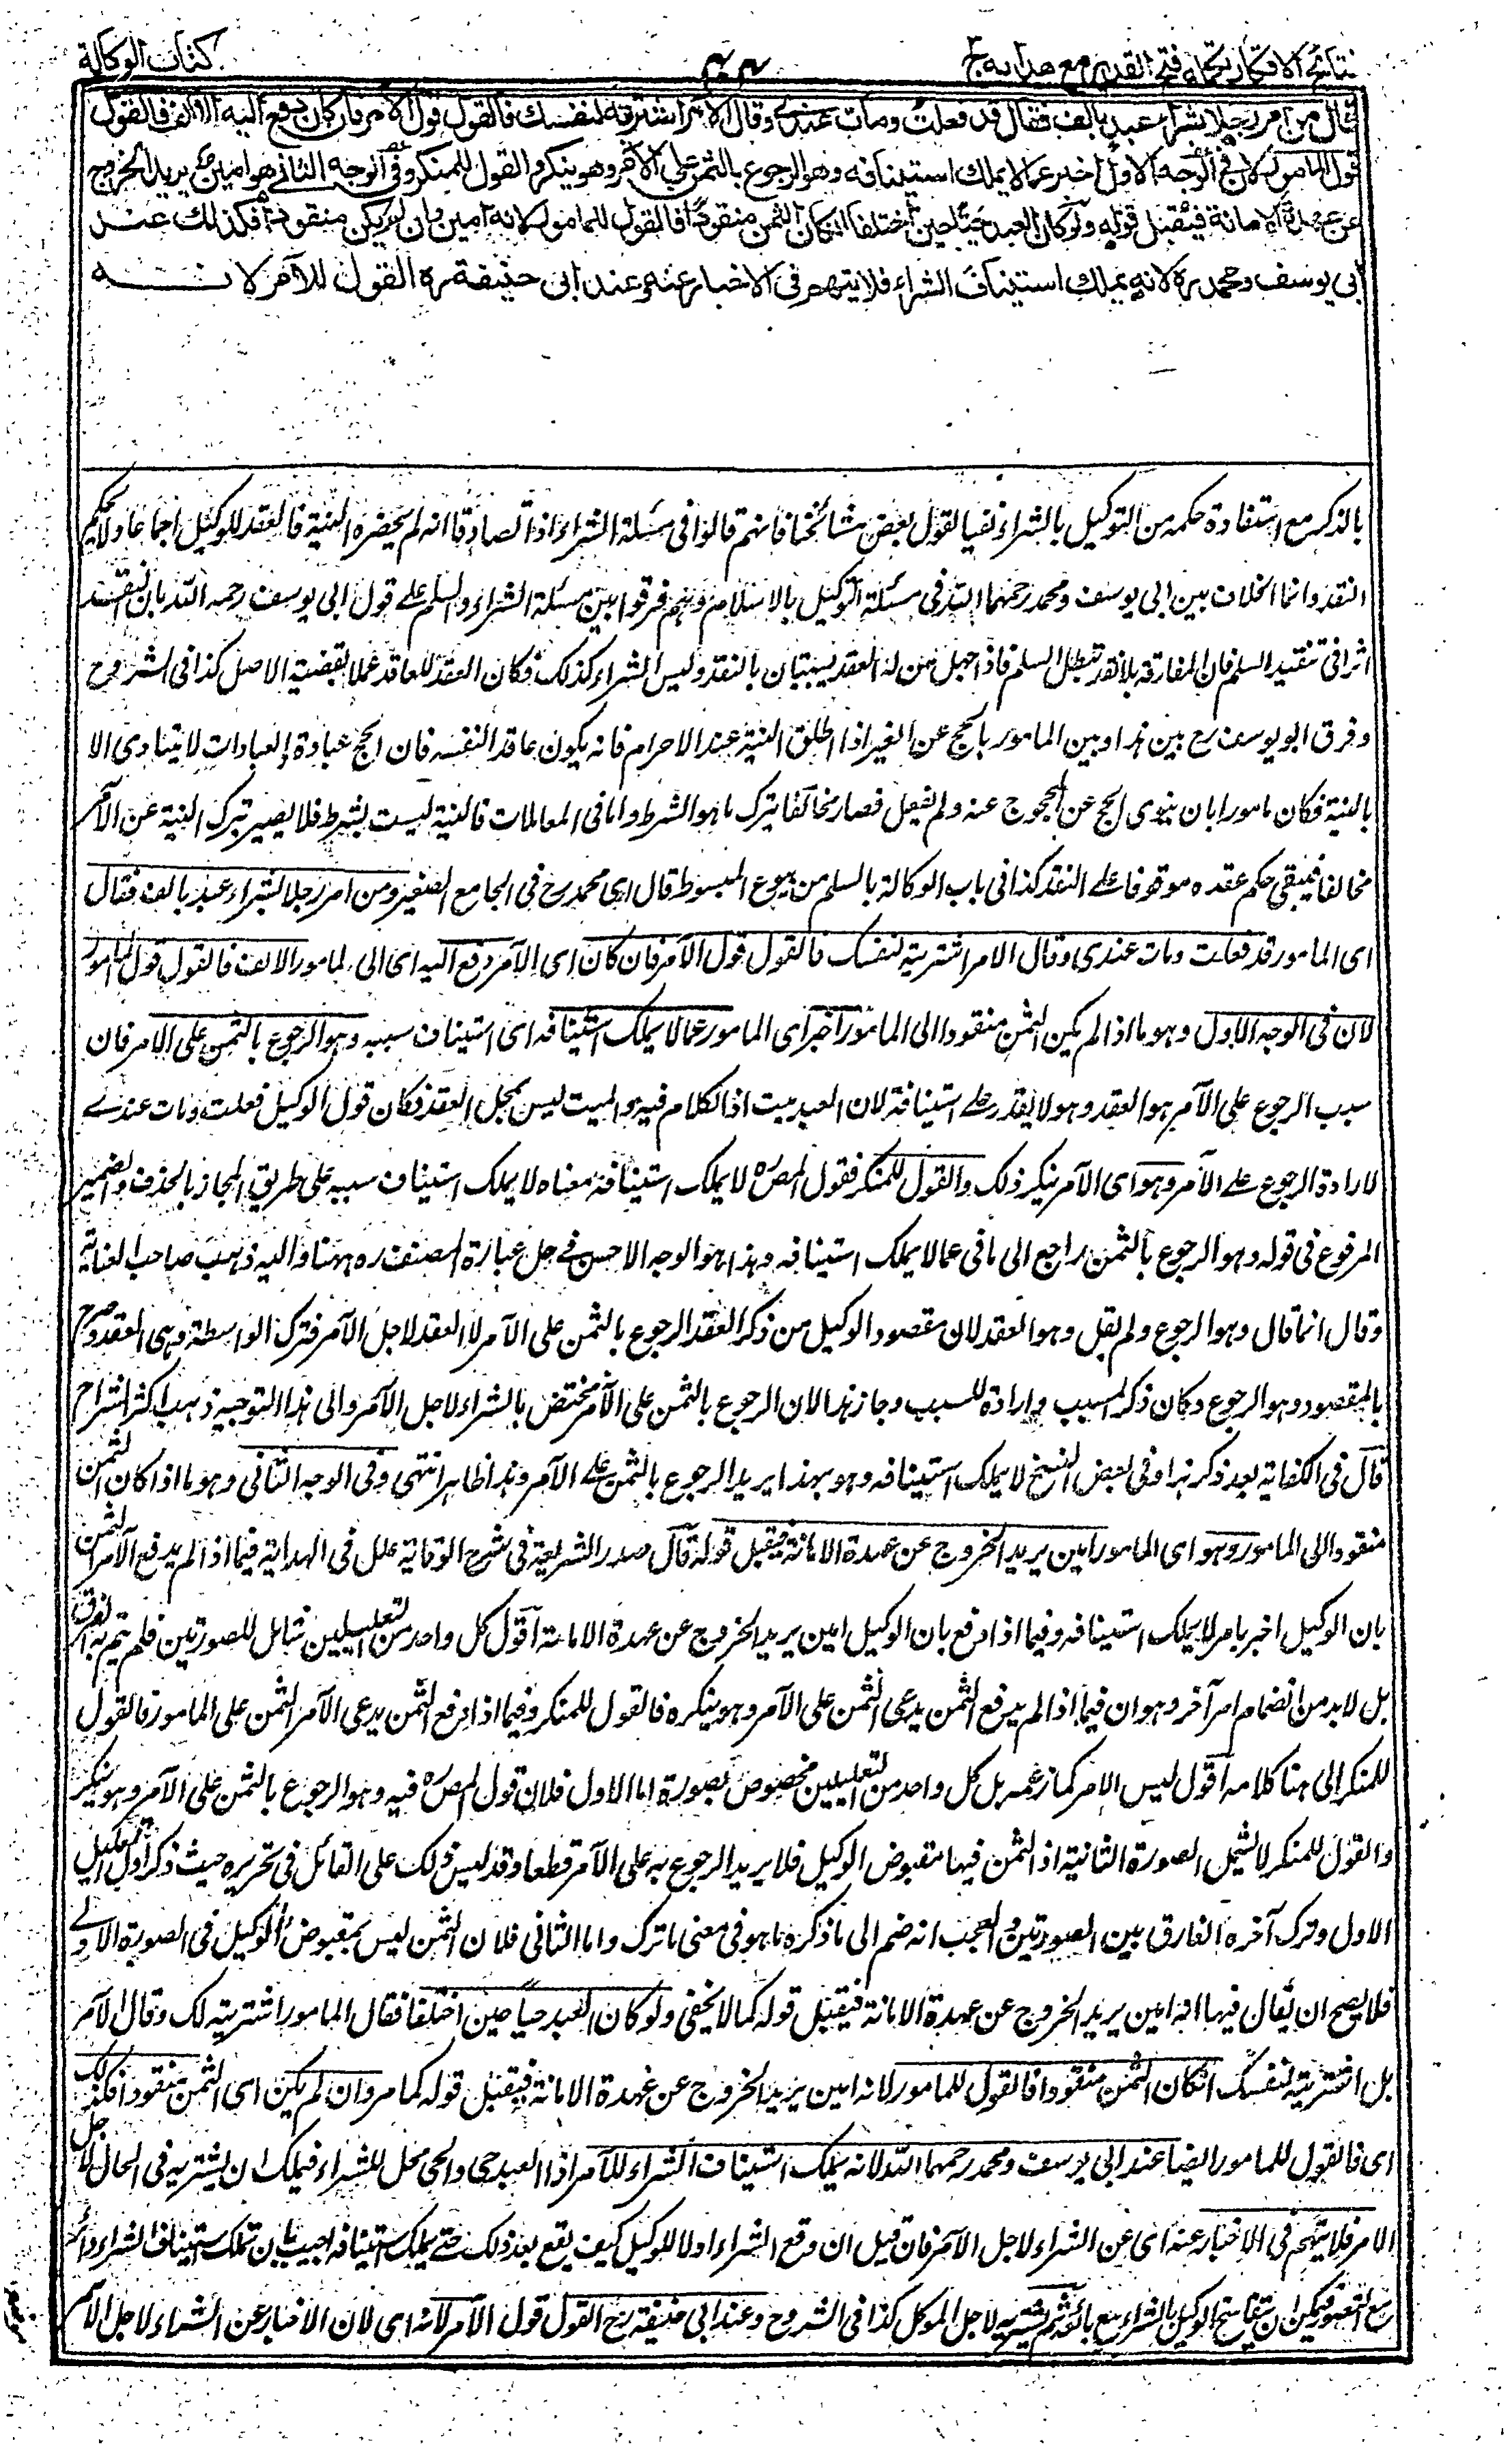 نتائج الافكار تكملة فتح القدير مع هدايه ج ٣
٤٤
كتاب الوكالة
قال من امر رجلا بشراء عبد بالف فقال قد فعلت ومات عندي وقال الامر اشتريته لنفسك فالقول قول الامر فان كان دفع اليه الالف فالقول
قول المامور لان في الوجه الاول اخبر عما لا يملك استينافه وهو الرجوع بالثمن على الامر وهو ينكر والقول للمنكر وفي الوجه الثاني هو امين يريد الخروج
عن عهدة الامانة فيقبل قوله ولو كان العبد حيا حين اختلفا ان كان الثمن منقودا فالقول للمامور لانه امين وان لم يكن منقودا فكذلك عند
ابي يوسف ومحمد ره لانه يملك استيناف الشراء فلا يتهم في الاخبار عنه وعند ابي حنيفة ره القول للآمر لانه
بالذكر مع استفادة حكمه من التوكيل بالشراء نفيا لقول بعض مشائخنا فانهم قالوا في مسئلة الشراء اذا تصادقا انه لم يحضره النية فالعقد للوكيل اجماعا ولا يحكم
النقد وانما الخلاف بين ابي يوسف ومحمد رحمهما الله في مسئلة التوكيل بالاسلام وهم فرقوا بين مسئلة الشراء والسلم على قول ابي يوسف رحمه الله بان للنقد
اثرا في تنفيذ السلم فان المفارقة بلا نقد تبطل السلم فاذا جهل من له العقد يستبان بالنقد وليس الشراء كذلك فكان العقد للعاقد عملا بقضية الاصل كذا في الشروح
وفرق ابو يوسف رح بين هذا وبين المامور بالحج عن الغير اذا اطلق النية عند الاحرام فانه يكون عاقدا لنفسه فان الحج عبادة والعبادات لا يتادى الا
بالنية فكان مامورا بان ينوي الحج عن المحجوج عنه ولم يفعل فصار مخالفا بترك ما هو الشرط واما في المعاملات فالنية ليست بشرط فلا يصير بترك النية عن الآمر
مخالفا فيبقى حكم عقده موقوفا على النقد كذا في باب الوكالة بالسلم من بيوع المبسوط قال اي محمد رح في الجامع الصغير ومن امر رجلا بشراء عبد بالف فقال
اي المامور قد فعلت ومات عندي وقال الامر اشتريته لنفسك فالقول قول الآمر فان كان اى الآمر دفع اليه اى الى المامور الالف فالقول قول المامور
لان في الوجه الاول وهو ما اذا لم يكن الثمن منقودا الى المامور اخبر اى المامور عما لا يملك استينافه اى استيناف سببه وهو الرجوع بالثمن على الامر فان
سبب الرجوع على الآمر هو العقد وهو لا يقدر على استينافه لان العبد ميت اذ الكلام فيه والميت ليس بمحل العقد فكان قول الوكيل فعلت ومات عندي
لارادة الرجوع على الآمر وهو اى الآمر ينكر ذلك والقول للمنكر فقول المصره لا يملك استينافه معناه لا يملك استيناف سببه على طريق المجاز بالحذف والضمير
المرفوع في قوله وهو الرجوع بالثمن راجع الى ما في عما لا يملك استينافه وهذا هو الوجه الاحسن في حل عبارة المصنف ره ههنا واليه ذهب صاحب العناية
وقال انما قال وهو الرجوع ولم يقل وهو العقد لان مقصود الوكيل من ذكر العقد الرجوع بالثمن على الآمر لا العقد لاجل الآمر فترك الواسطة وهى العقد وصرح
بالمقصود وهو الرجوع وكان ذكر المسبب وارادة للسبب وجاز هذا لان الرجوع بالثمن على الآمر مختص بالشراء لاجل الآمر والى هذا التوجيه ذهب اكثر الشراح
قال في الكفاية بعد ذكر هذا وفي بعض النسخ لا يملك استينافه وهو بهذا يريد الرجوع بالثمن على الآمر وهذا ظاهر انتهى وفي الوجه الثاني وهو ما اذا كان الثمن
منقودا الى المامور وهو اى المامور امين يريد الخروج عن عهدة الامانة فيقبل قوله قال صدر الشريعة في شرح الوقاية علل في الهداية فيما اذا لم يدفع الآمر الثمن
بان الوكيل اخبر بامر لا يملك استينافه وفيما اذا دفع بان الوكيل امين يريد الخروج عن عهدة الامانة اقول كل واحد من التعليلين شامل للصورتين فلم يتم به الفرق
بل لا بد من انضمام امر آخر وهو ان فيما اذا لم يدفع الثمن يدعى الثمن على الآمر وهو ينكره فالقول للمنكر وفيما اذا دفع الثمن يدعى الآمر الثمن على المامور فالقول
للمنكر الى هنا كلامه اقول ليس الامر كما زعمه بل كل واحد من التعليلين مخصوص بصورة اما الاول فلان قول المصره فيه وهو الرجوع بالثمن على الآمر وهو ينكر
والقول للمنكر لا يشمل الصورة الثانية اذ الثمن فيها مقبوض الوكيل فلا يريد الرجوع به على الآمر قطعا وقد لبس ذلك على القائل في تحريره حيث ذكر اول التعليل
الاول وترك آخره الفارق بين الصورتين والعجب انه ضم الى ما ذكره ما هو في معنى ما ترك واما الثاني فلان الثمن ليس بمقبوض الوكيل في الصورة الاولى
فلا يصح ان يقال فيها انه امين يريد الخروج عن عهدة الامانة فيقبل قوله كما لا يخفى ولو كان العبد حيا حين اختلفا فقال المامور اشتريته لك وقال الآمر
بل اشتريته لنفسك ان كان الثمن منقودا فالقول للمامور لانه امين يريد الخروج عن عهدة الامانة فيقبل قوله كما مر وان لم يكن اى الثمن منقودا فكذلك
اى فالقول للمامور ايضا عند ابي يوسف ومحمد رحمهما الله لانه يملك استيناف الشراء للآمر اذ العبد حى والحى محل للشراء فيملك ان يشتريه في الحال لاجل
الامر فلا يتهم في الاخبار عنه اى عن الشراء لاجل الآمر فان قيل ان وقع الشراء اولا للوكيل كيف يقع بعد ذلك حتى يملك استينافه اجيب بان تملك استيناف الشراء دائر
مع التصور فيمكن ان يتقايل الوكيل بالشراء مع بائعه ثم يشتريه لاجل الموكل كذا في الشروح وعند ابي حنيفة رح القول قول الآمر لانه اى لان الاخبار عن الشراء لاجل الآمر